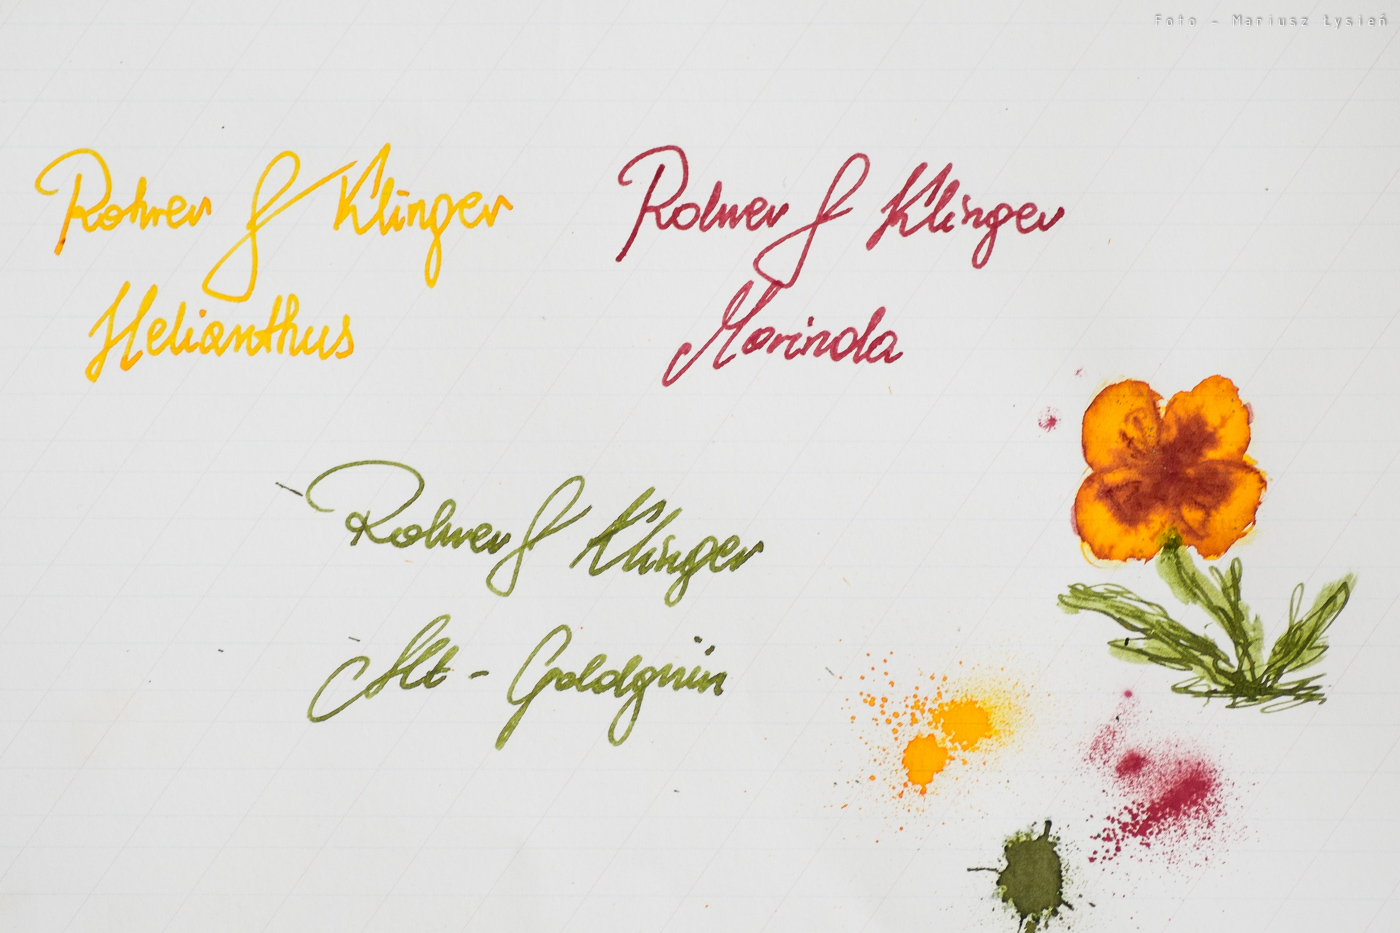 Foto - Mariusz Łysień
Rohrer & Klinger
Helianthus
Rohrer & Klinger
Morinda
Rohrer & Klinger
Alt - Goldgrün